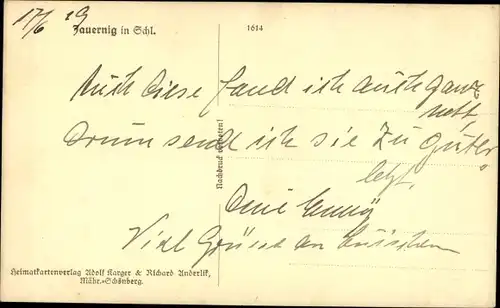 17/6 19
Jauernig in Schl.
1614
Auch diese fand ich auch ganz
nett,
Drum send ich sie zu guter
letzt.
Deine Emmy
Viel Grüsse an
Nachdruck verboten!
Heimatkartenverlag Adolf Karger & Richard Anderlik,
Mähr.-Schönberg.